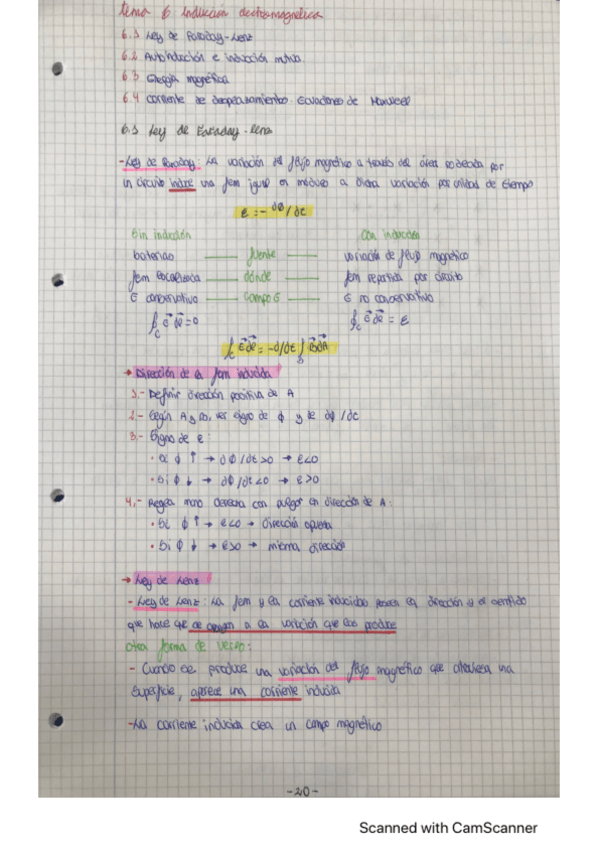 tema 6 Inducción electromagnética
6.1 Ley de Faraday-Lenz
6.2 Autoinducción e inducción mutua
6.3 Energía magnética
6.4 corriente de desplazamiento. Ecuaciones de Maxwell
6.1 Ley de Faraday-lenz
-Ley de Faraday: La variación del flujo magnético a través del área rodeada por
un circuito induce una fem igual en módulo a dicha variación por unidad de tiempo
ε = - dΦ/dt
Sin inducción Con inducción
baterías —— fuente —— variación de flujo magnético
fem localizada —— dónde —— fem repartida por circuito
E conservativo —— campo E —— E no conservativo
∮c E dl = 0 ∮c E dl = ε
∫c E dl = -d/dt ∫s B dA
→ Dirección de la fem inducida
1.- Definir dirección positiva de A
2.- Según A y B, ver signo de Φ y de dΦ/dt
3.- Signo de ε:
· Si Φ ↑ → dΦ/dt>0 → ε<0
· Si Φ ↓ → dΦ/dt<0 → ε>0
4.- Regla mano derecha con pulgar en dirección de A:
· Si Φ ↑ → ε<0 → dirección opuesta
· Si Φ ↓ → ε>0 → misma dirección
→ Ley de Lenz
- Ley de Lenz: La fem y la corriente inducidas poseen la dirección y el sentido
que hace que se opongan a la variación que las produce
otra forma de verlo:
- Cuando se produce una variación del flujo magnético que atraviesa una
superficie, aparece una corriente inducida
-La corriente inducida crea un campo magnético
-20-
Scanned with CamScanner